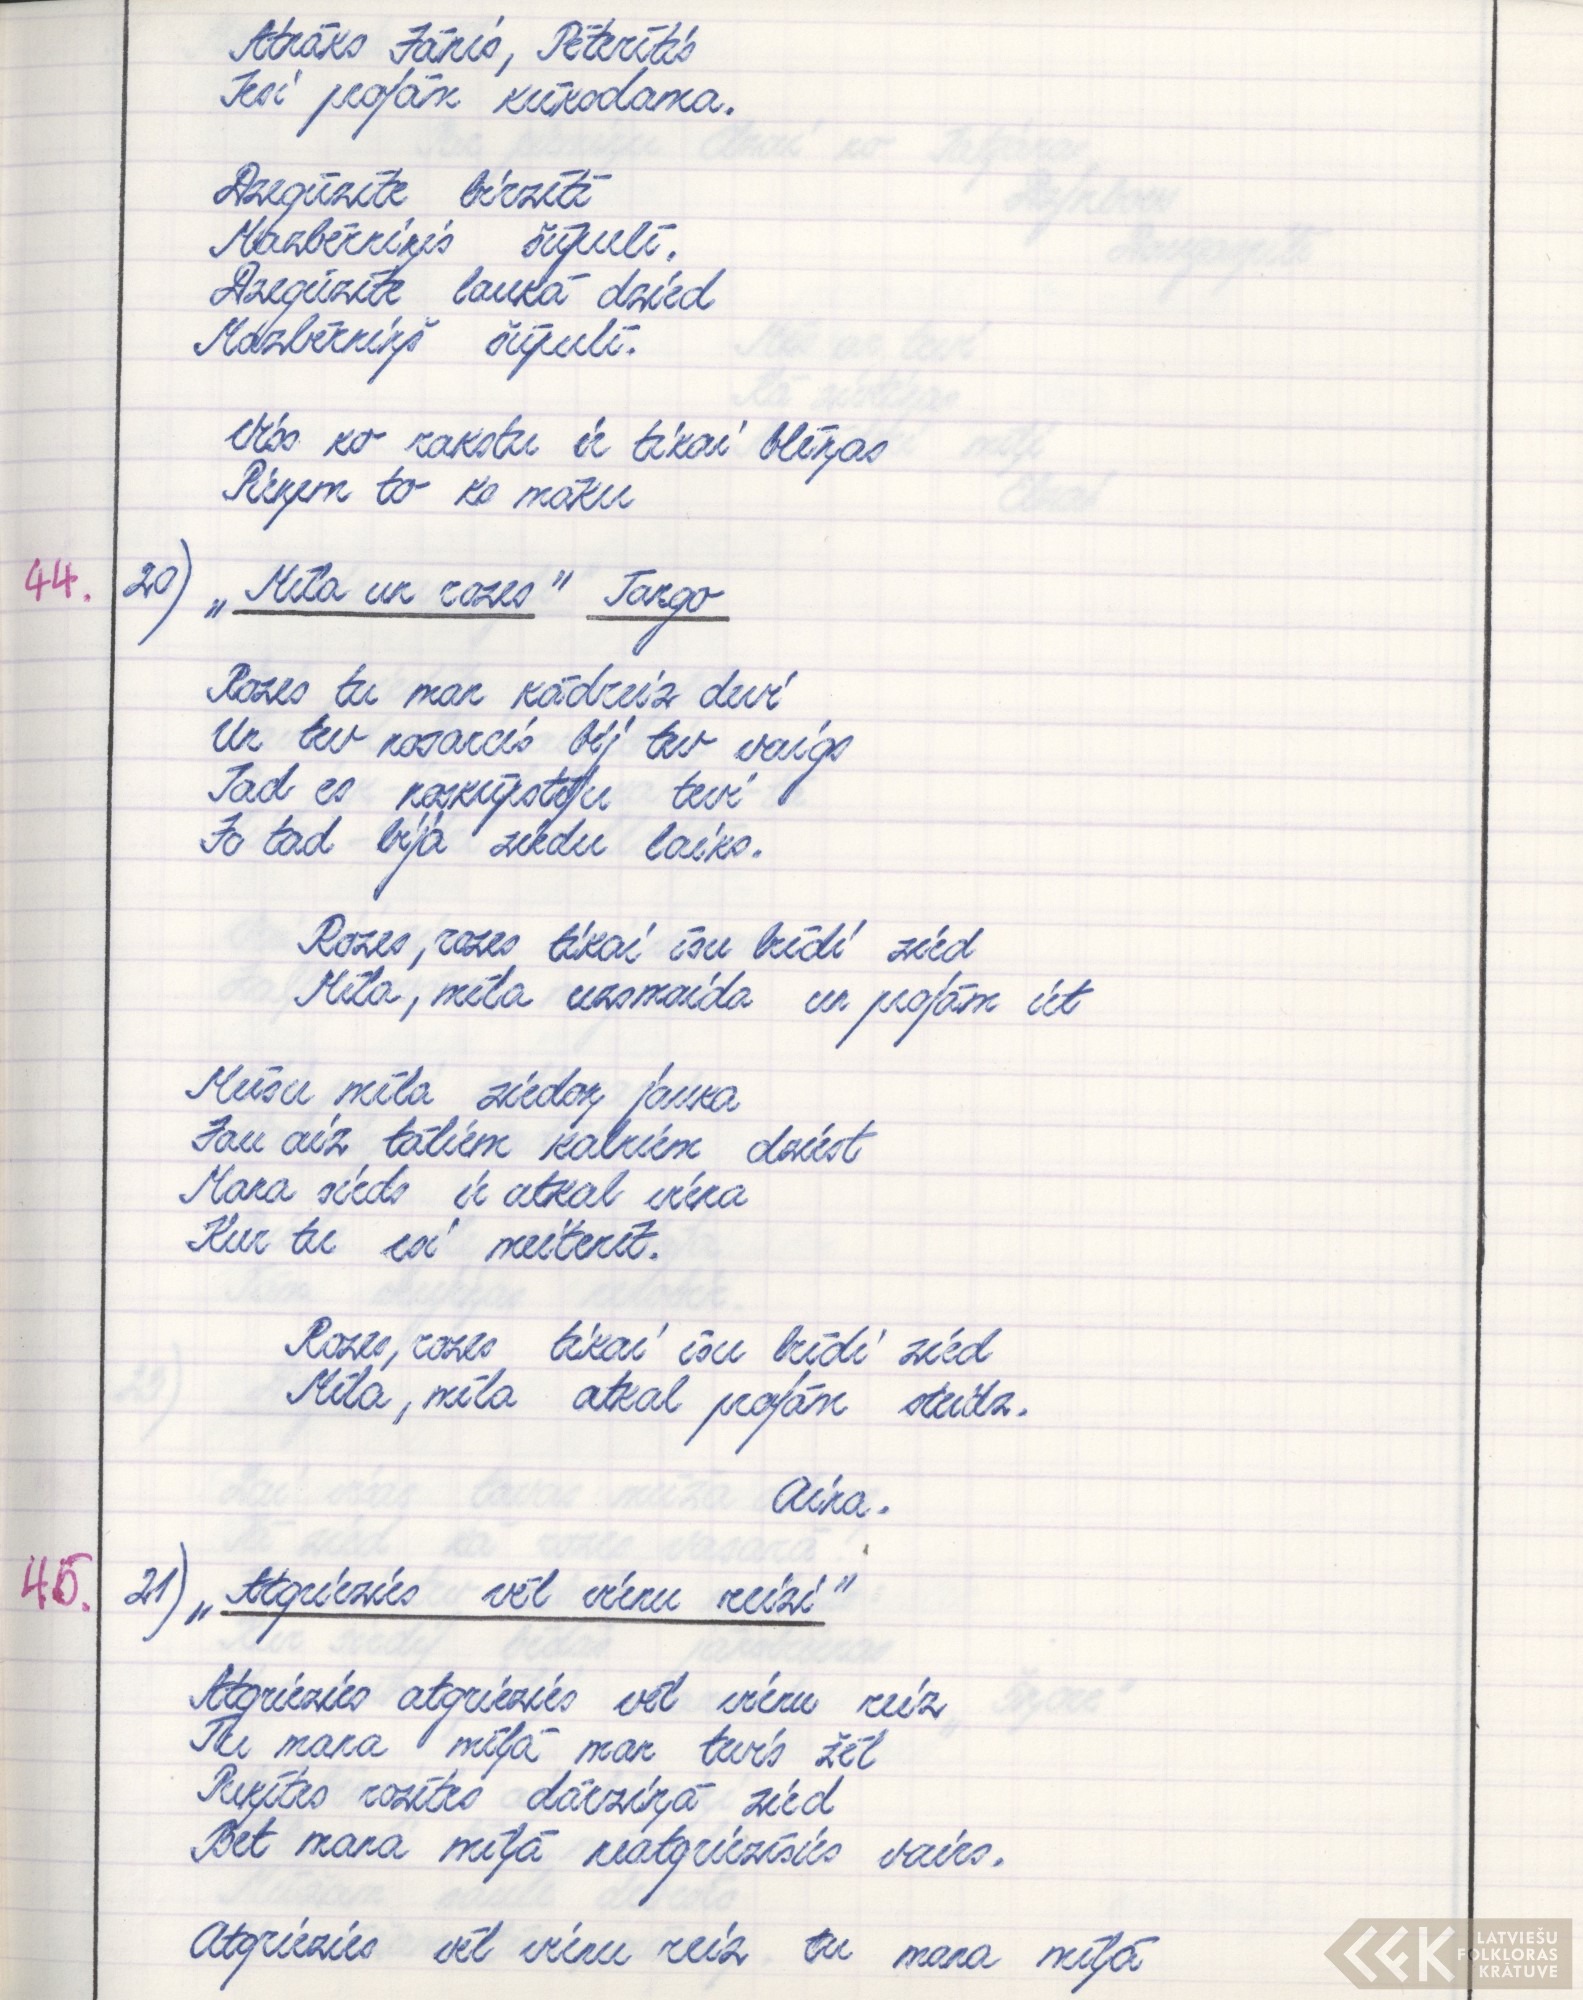 Atnāks Jānis, Pēterītis
Iesi projām kūkodama.
Dzegūzīte birzītē
Mazbērniņis šūpulī.
Dzegūzīte laukā dzied
Mazbērniņš šūpulī.
Viss ko rakstu ir tikai blēņas
Pieņem to ko māku
44. 20) „Mīla un rozes" Tango
Rozes tu man kādreiz devi
Un tev nosarcis bij tev vaigs
Tad es noskūpstīju tevi
Jo tad bija ziedu laiks.
Rozes, rozes tikai īsu brīdi zied
Mīla, mīla uzsmaida un projām iet
Mūsu mīla ziedoņ jauka
Jau aiz tāliem kalniem dziest
Mana sirds ir atkal viena
Kur tu esi meitenīt.
Rozes, rozes tikai īsu brīdi zied
Mīla, mīla atkal projām steidz.
Aina.
45. 21) „Atgriezies vēl vienu reizi"
Atgriezies atgriezies vēl vienu reiz
Tu mana mīļā man tevis žēl
Puķītes rozītes dārziņā zied
Bet mana mīļā neatgriezīsies vairs.
Atgriezies vēl vienu reiz tu mana mīļā
LATVIEŠU
FOLKLORAS
KRĀTUVE